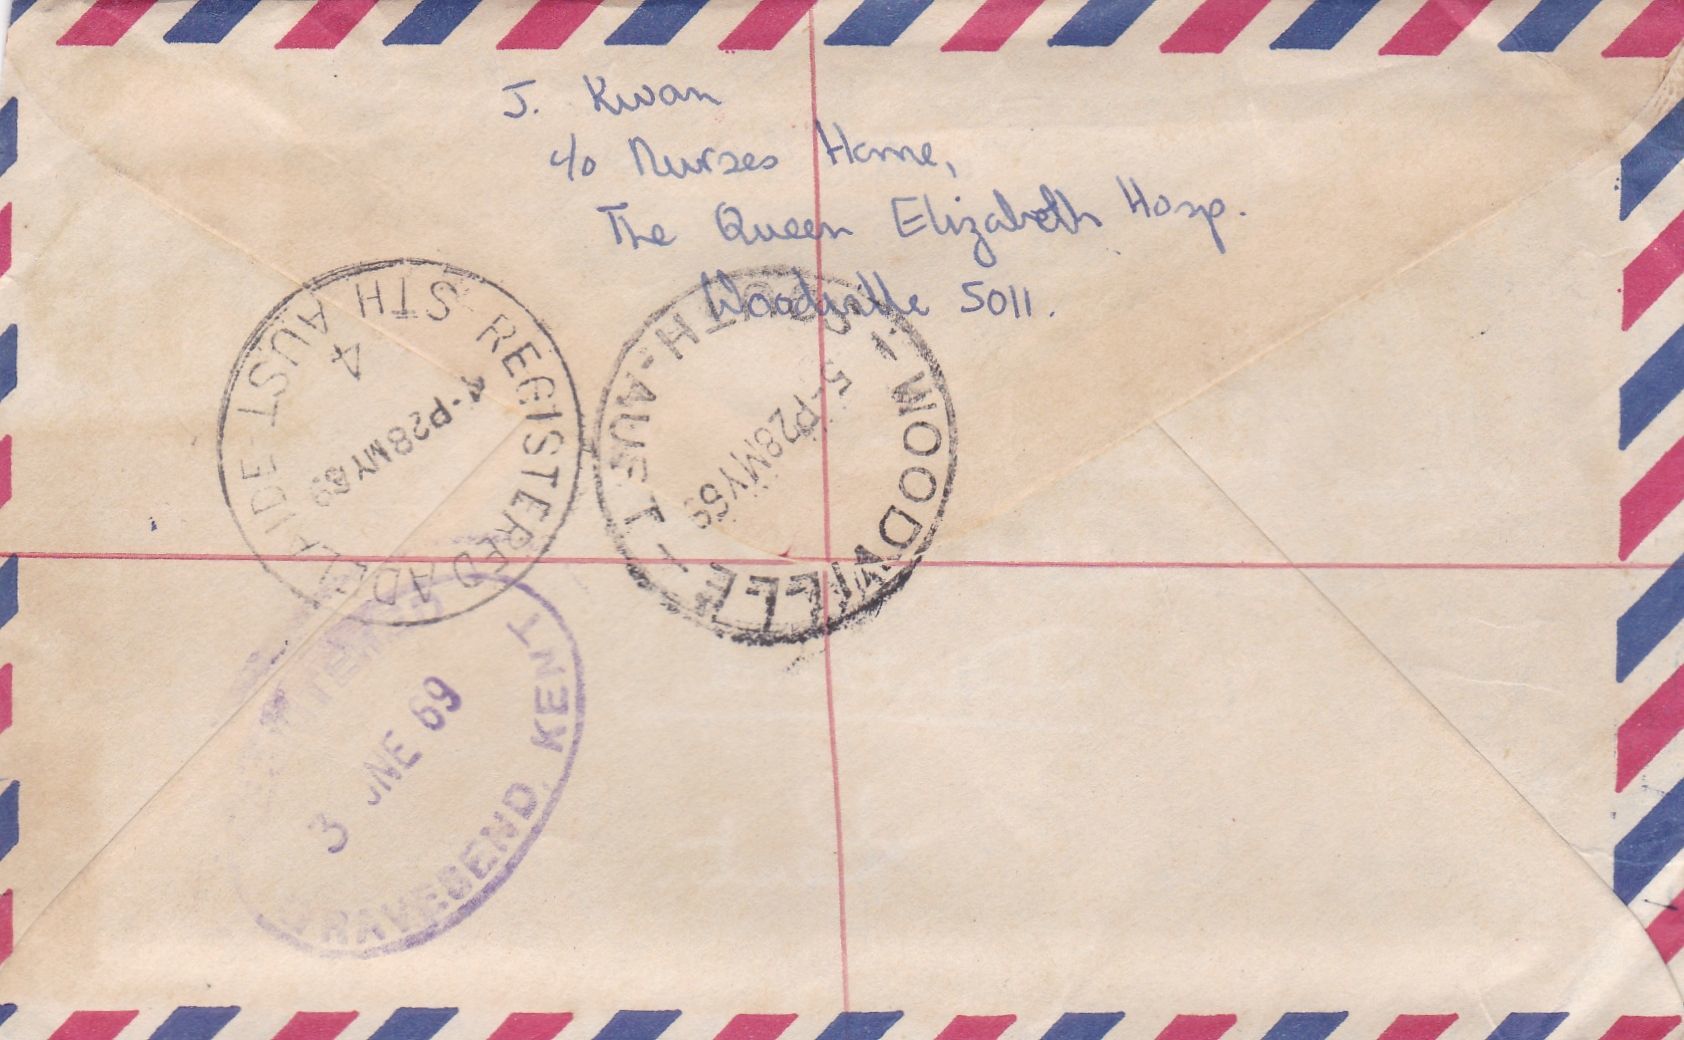 J. Kwan
c/o Nurses Home,
The Queen Elizabeth Hosp.
Woodville 5011.
REGISTERED ADELAIDE STH AUST
4
4-P28MY69
1 WOODVILLE SOUTH-AUST
5-P28MY69
3 JNE 69
GRAVESEND KENT